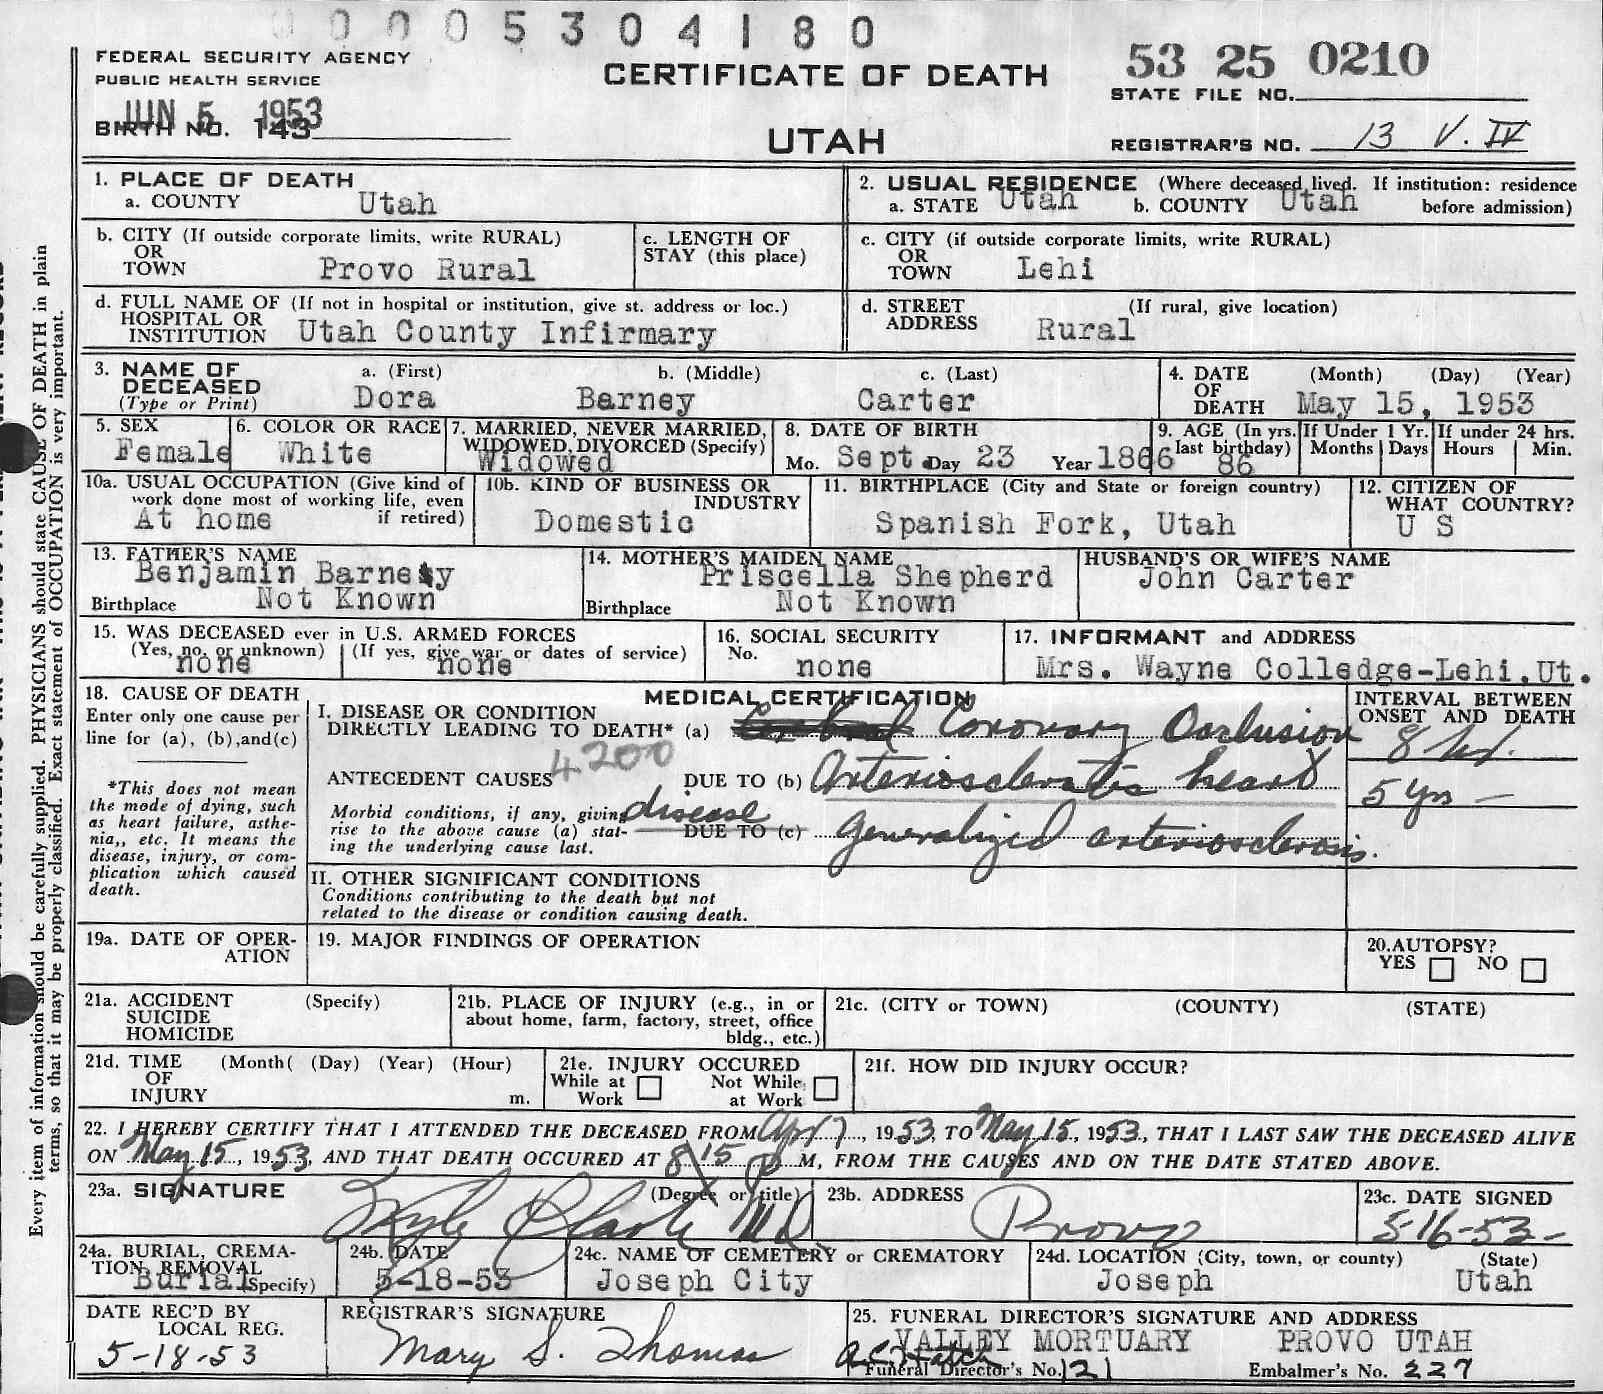 0 0 0 0 5 3 0 4 1 8 0
FEDERAL SECURITY AGENCY
PUBLIC HEALTH SERVICE
JUN 5 1953
BIRTH NO. 143
CERTIFICATE OF DEATH
UTAH
53 25 0210
STATE FILE NO.
REGISTRAR'S NO. 13 V. IV
1. PLACE OF DEATH
a. COUNTY Utah
2. USUAL RESIDENCE (Where deceased lived. If institution: residence
a. STATE Utah b. COUNTY Utah before admission)
b. CITY (If outside corporate limits, write RURAL)
OR
TOWN Provo Rural
c. LENGTH OF
STAY (this place)
c. CITY (if outside corporate limits, write RURAL)
OR
TOWN Lehi
d. FULL NAME OF (If not in hospital or institution, give st. address or loc.)
HOSPITAL OR
INSTITUTION Utah County Infirmary
d. STREET (If rural, give location)
ADDRESS Rural
3. NAME OF a. (First) b. (Middle) c. (Last)
DECEASED
(Type or Print) Dora Barney Carter
4. DATE (Month) (Day) (Year)
OF
DEATH May 15, 1953
5. SEX
Female
6. COLOR OR RACE
White
7. MARRIED, NEVER MARRIED,
WIDOWED, DIVORCED (Specify)
Widowed
8. DATE OF BIRTH
Mo. Sept. Day 23 Year 1866
9. AGE (In yrs.
last birthday)
86
If Under 1 Yr.
Months Days
If under 24 hrs.
Hours Min.
10a. USUAL OCCUPATION (Give kind of
work done most of working life, even
At home if retired)
10b. KIND OF BUSINESS OR
INDUSTRY
Domestic
11. BIRTHPLACE (City and State or foreign country)
Spanish Fork, Utah
12. CITIZEN OF
WHAT COUNTRY?
U S
13. FATHER'S NAME
Benjamin Barney
Birthplace Not Known
14. MOTHER'S MAIDEN NAME
Priscella Shepherd
Birthplace Not Known
HUSBAND'S OR WIFE'S NAME
John Carter
15. WAS DECEASED ever in U.S. ARMED FORCES
(Yes, no, or unknown) (If yes, give war or dates of service)
none none
16. SOCIAL SECURITY
No. none
17. INFORMANT and ADDRESS
Mrs. Wayne Colledge-Lehi,Ut.
18. CAUSE OF DEATH
Enter only one cause per
line for (a), (b),and(c)
*This does not mean
the mode of dying, such
as heart failure, asthe-
nia,, etc. It means the
disease, injury, or com-
plication which caused
death.
MEDICAL CERTIFICATION
I. DISEASE OR CONDITION
DIRECTLY LEADING TO DEATH* (a) Coronary Occlusion
4200
ANTECEDENT CAUSES DUE TO (b) Arteriosclerotic heart
Morbid conditions, if any, giving disease
rise to the above cause (a) stat- DUE TO (c) generalized arteriosclerosis.
ing the underlying cause last.
INTERVAL BETWEEN
ONSET AND DEATH
5 yrs —
II. OTHER SIGNIFICANT CONDITIONS
Conditions contributing to the death but not
related to the disease or condition causing death.
19a. DATE OF OPER-
ATION
19. MAJOR FINDINGS OF OPERATION
20.AUTOPSY?
YES NO
21a. ACCIDENT (Specify)
SUICIDE
HOMICIDE
21b. PLACE OF INJURY (e.g., in or
about home, farm, factory, street, office
bldg., etc.)
21c. (CITY or TOWN) (COUNTY) (STATE)
21d. TIME (Month( (Day) (Year) (Hour)
OF
INJURY m.
21e. INJURY OCCURED
While at Not While
Work at Work
21f. HOW DID INJURY OCCUR?
22. I HEREBY CERTIFY THAT I ATTENDED THE DECEASED FROM Apr 7, 1953, TO May 15, 1953, THAT I LAST SAW THE DECEASED ALIVE
ON May 15, 1953, AND THAT DEATH OCCURED AT 8 15 P. M, FROM THE CAUSES AND ON THE DATE STATED ABOVE.
23a. SIGNATURE (Degree or title)
M D
23b. ADDRESS
Provo
23c. DATE SIGNED
5-16-53-
24a. BURIAL, CREMA-
TION, REMOVAL
Burial (Specify)
24b. DATE
5-18-53
24c. NAME OF CEMETERY or CREMATORY
Joseph City
24d. LOCATION (City, town, or county) (State)
Joseph Utah
DATE REC'D BY
LOCAL REG.
5-18-53
REGISTRAR'S SIGNATURE
Mary S. Thomas
25. FUNERAL DIRECTOR'S SIGNATURE AND ADDRESS
VALLEY MORTUARY PROVO UTAH
A.C. Hatch
Funeral Director's No. 121 Embalmer's No. 227
Every item of information should be carefully supplied. PHYSICIANS should state CAUSE OF DEATH in plain
terms, so that it may be properly classified. Exact statement of OCCUPATION is very important.